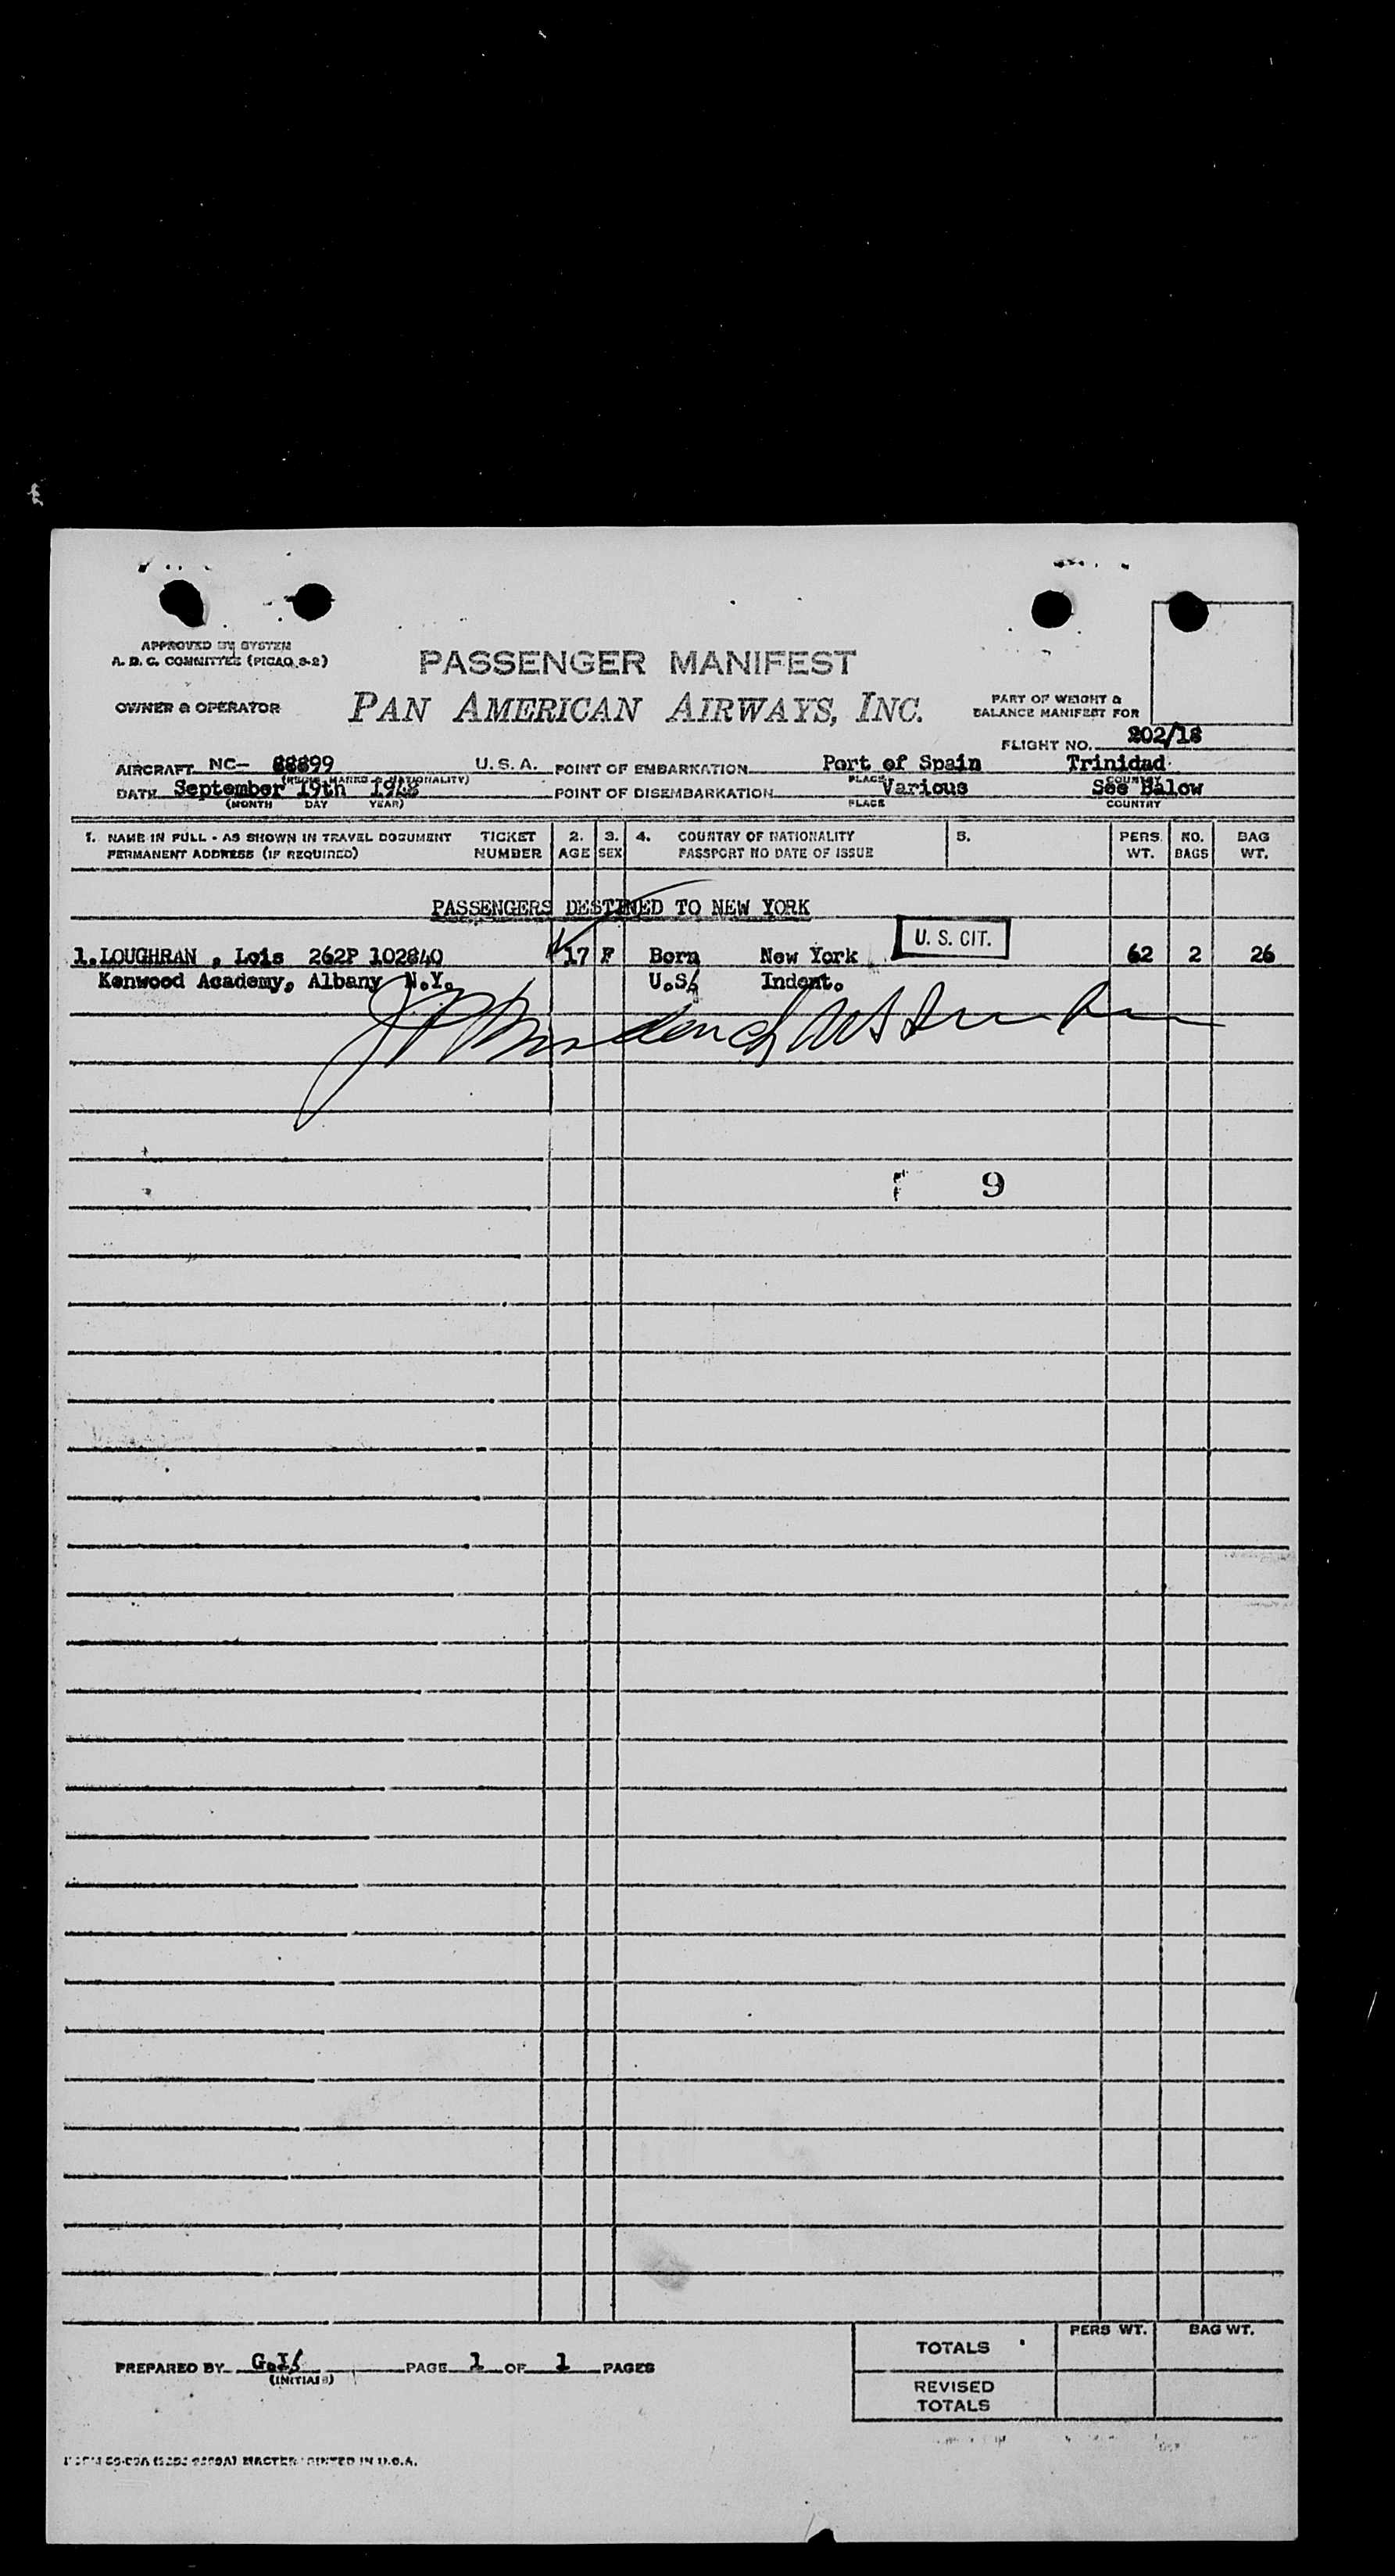 APPROVED BY SYSTEM
A. D. C. COMMITTEE (PICAO 9-2)
PASSENGER MANIFEST
OWNER & OPERATOR
PAN AMERICAN AIRWAYS, INC.
PART OF WEIGHT &
BALANCE MANIFEST FOR
FLIGHT NO. 202/18
AIRCRAFT NC- 88899 U. S. A. POINT OF EMBARKATION Port of Spain Trinidad
(REGIS. MARKS & NATIONALITY) PLACE COUNTRY
DATE September 19th 1948 POINT OF DISEMBARKATION Various See Balow
(MONTH DAY YEAR) PLACE COUNTRY
1. NAME IN FULL - AS SHOWN IN TRAVEL DOCUMENT TICKET 2. 3. 4. COUNTRY OF NATIONALITY 5. PERS. NO. BAG
PERMANENT ADDRESS (IF REQUIRED) NUMBER AGE SEX PASSPORT NO DATE OF ISSUE WT. BAGS WT.
PASSENGERS DESTINED TO NEW YORK
1. LOUGHRAN , Lois 262P 102840 17 F Born New York U. S. CIT. 62 2 26
Kenwood Academy, Albany N.Y. U.S/ Indent.
9
PERS WT. BAG WT.
TOTALS
PREPARED BY G.I/ PAGE 1 OF 1 PAGES
(INITIALS)
REVISED
TOTALS
MASTER PRINTED IN U.S.A.